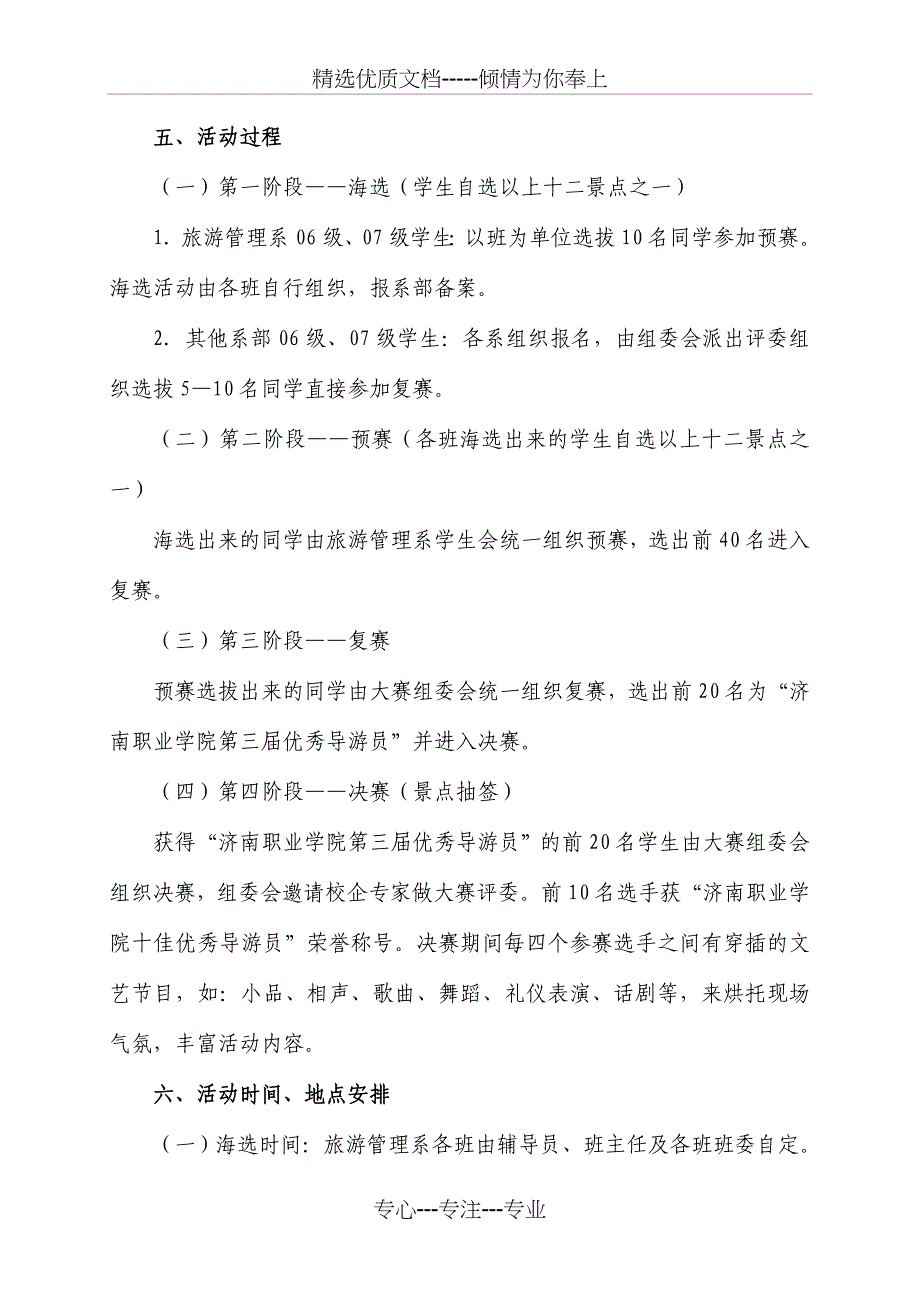 精选优质文档-----倾情为你奉上
五、活动过程
（一）第一阶段——海选（学生自选以上十二景点之一）
1. 旅游管理系 06 级、07 级学生：以班为单位选拔 10 名同学参加预赛。
海选活动由各班自行组织，报系部备案。
2. 其他系部 06 级、07 级学生：各系组织报名，由组委会派出评委组
织选拔 5—10 名同学直接参加复赛。
（二）第二阶段——预赛（各班海选出来的学生自选以上十二景点之
一）
海选出来的同学由旅游管理系学生会统一组织预赛，选出前 40 名进入
复赛。
（三）第三阶段——复赛
预赛选拔出来的同学由大赛组委会统一组织复赛，选出前 20 名为“济
南职业学院第三届优秀导游员”并进入决赛。
（四）第四阶段——决赛（景点抽签）
获得“济南职业学院第三届优秀导游员”的前 20 名学生由大赛组委会
组织决赛，组委会邀请校企专家做大赛评委。前 10 名选手获“济南职业学
院十佳优秀导游员”荣誉称号。决赛期间每四个参赛选手之间有穿插的文
艺节目，如：小品、相声、歌曲、舞蹈、礼仪表演、话剧等，来烘托现场
气氛，丰富活动内容。
六、活动时间、地点安排
（一）海选时间：旅游管理系各班由辅导员、班主任及各班班委自定。
专心---专注---专业